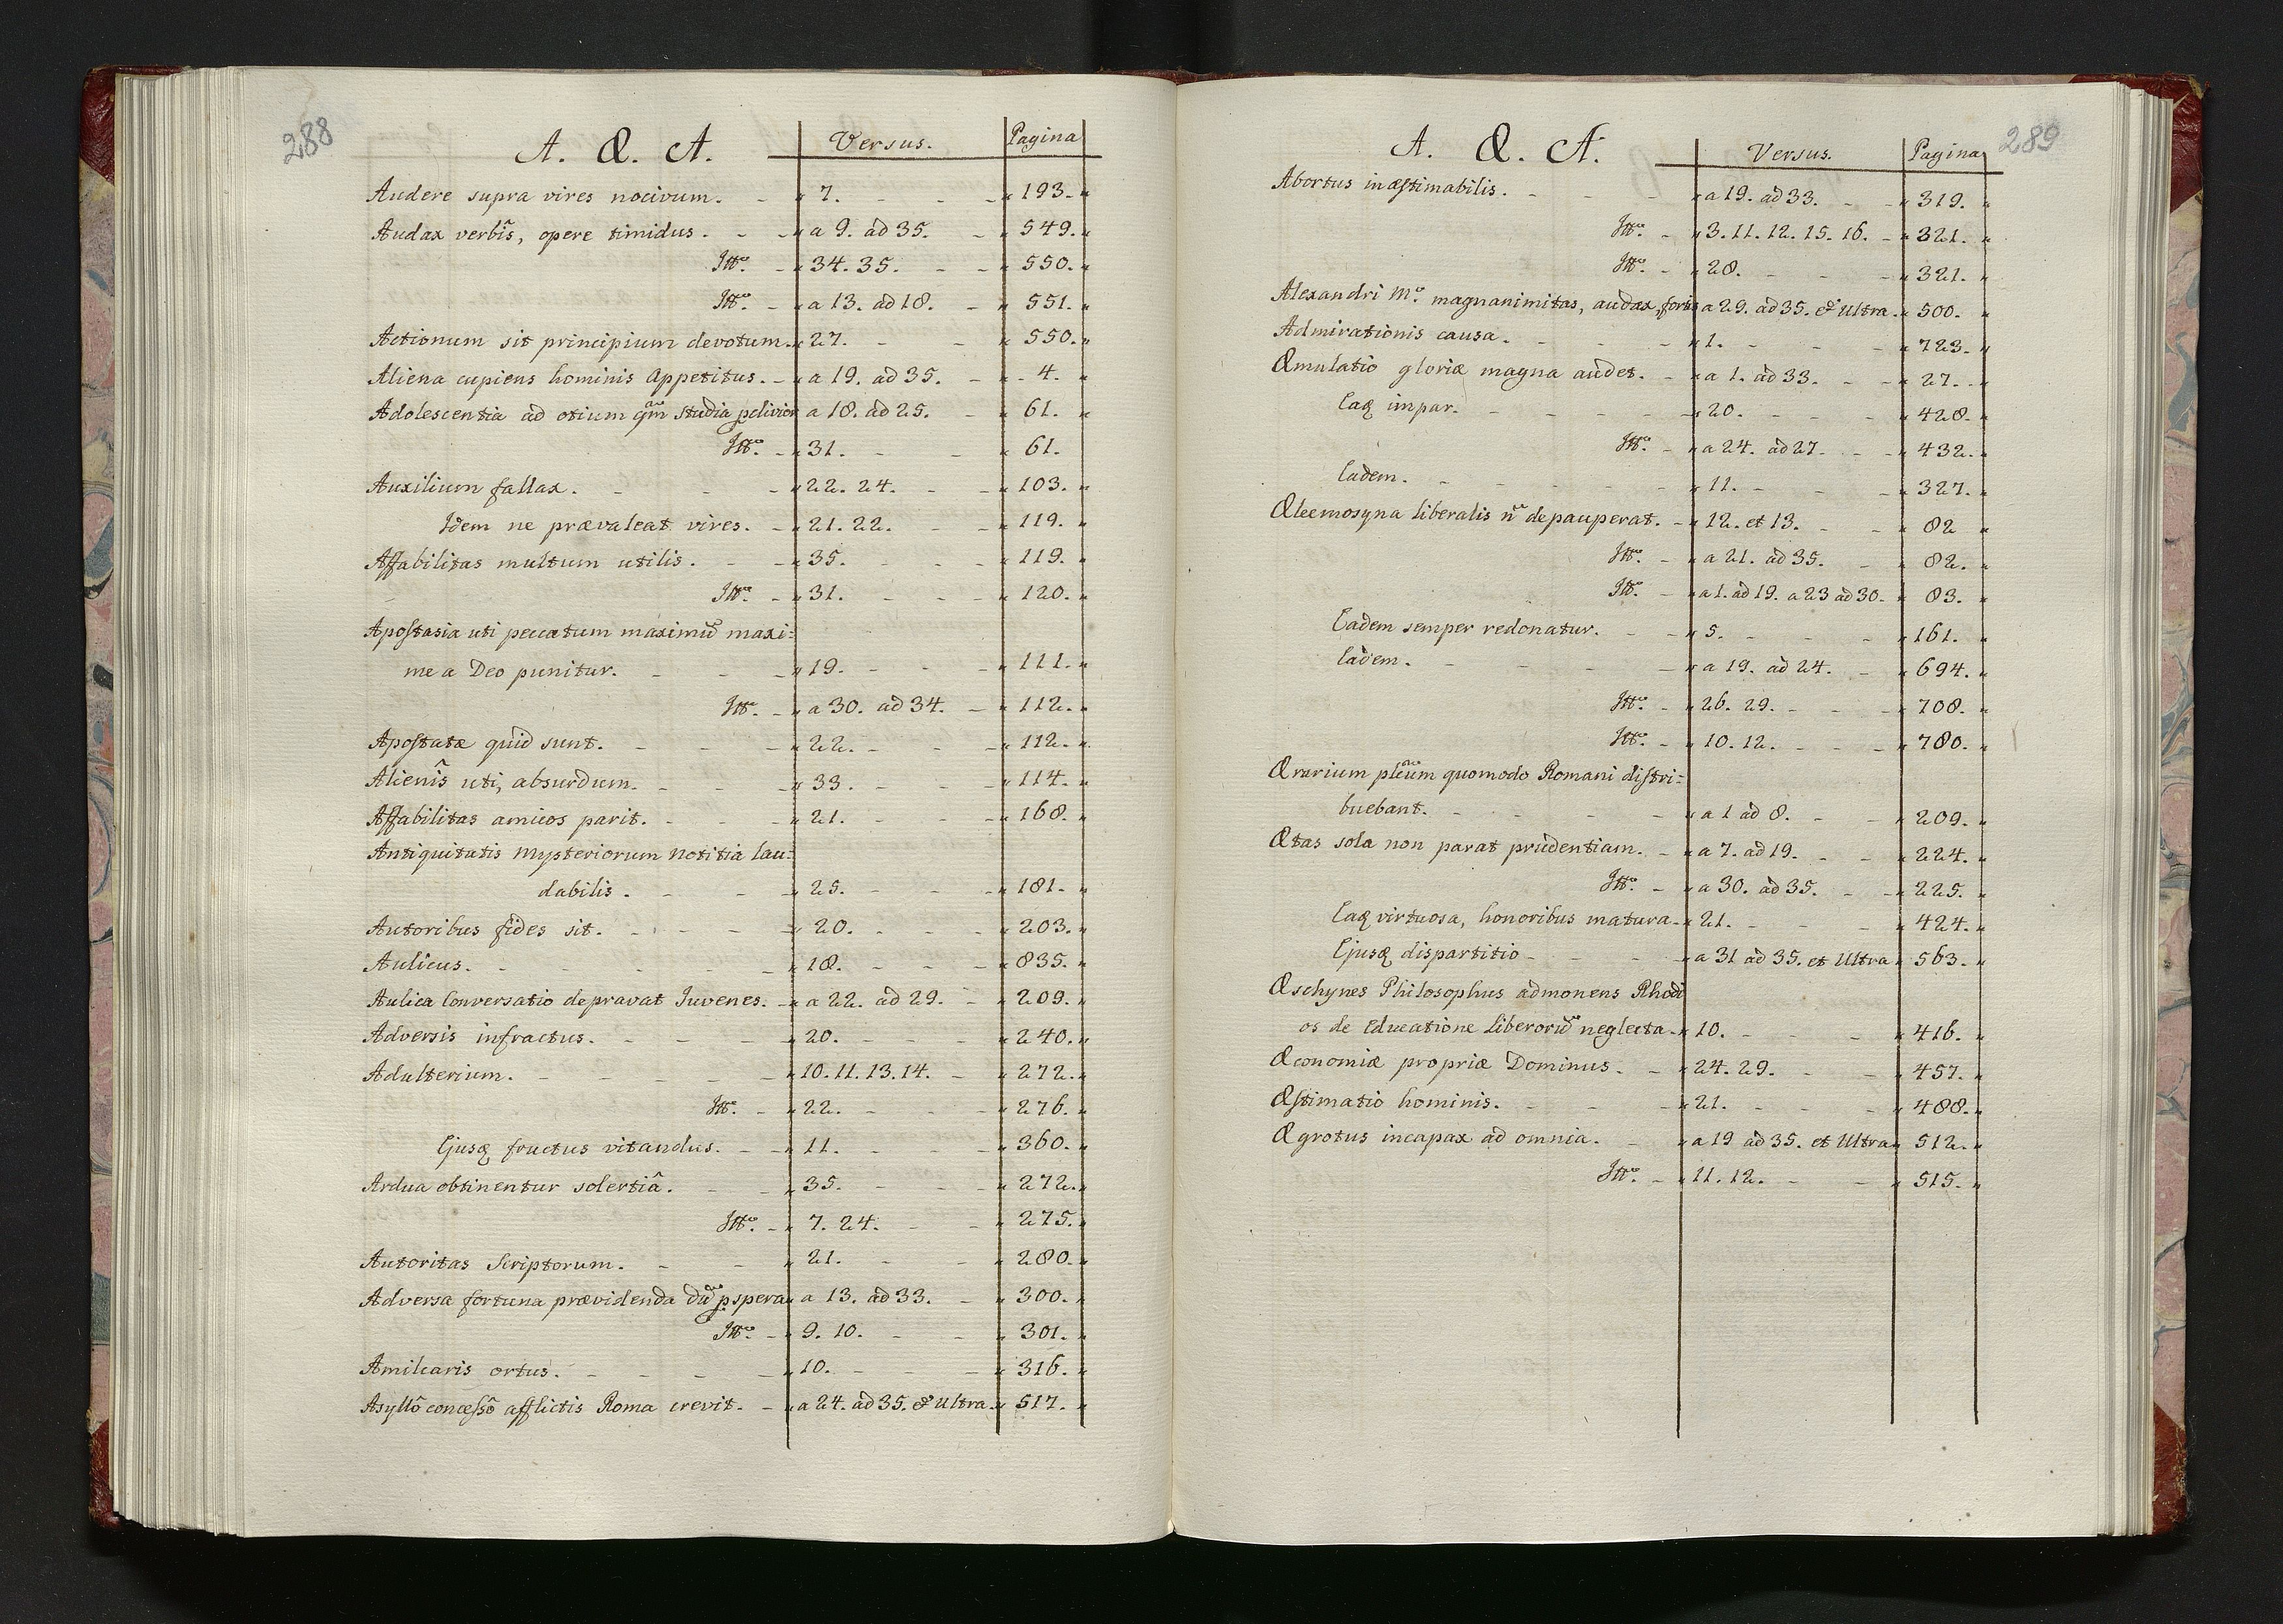 288
A. Æ. A. Versus. Pagina
Audere supra vires nocivum. 7. 193.
Audax verbîs, opere timidus. a 9. ad 35. 549.
Itto. 34. 35. 550.
Itto. a 13. ad 18. 551.
Actionum sit principium devotum. 27. 550.
Aliena cupiens hominis appetitus. a 19. ad 35. 4.
Adolescentia ad otium qm studia pclivior a 18. ad 25. 61.
Itto. 31. 61.
Auxilium fallax. 22. 24. 103.
Idem ne prævaleat vires. 21. 22. 119.
Affabilitas multum utilis. 35. 119.
Itto. 31. 120.
Apostasia uti peccatum maximū maxi=
me a Deo punitur. 19. 111.
Itto. a 30. ad 34. 112.
Apostatæ quid sunt. 22. 112.
Alienîs uti, absurdum. 33. 114.
Affabilitas amicos parit. 21. 168.
Antiquitatis mysteriorum notitia lau=
dabilis. 25. 181.
Autoribus fides sit. 20. 203.
Aulicus. 18. 835.
Aulica Conversatio depravat Iuvenes. a 22. ad 29. 209.
Adversis infractus. 20. 240.
Adulterium. 10. 11. 13. 14. 272.
Itto. 22. 276.
Ejusq fructus vitandus. 11. 360.
Ardua obtinentur solertiâ. 35. 272.
Itto. 7. 24. 275.
Autoritas Scriptorum. 21. 280.
Adversa fortuna prævidenda dū pspera a 13. ad 33. 300.
Itto. 9. 10. 301.
Amilcaris ortus. 10. 316.
Asyllô concessô afflictis Roma crevit. a 24. ad 35. & Ultra. 517.
289
A. Æ. A. Versus. Pagina
Abortus inæstimabilis. a 19. ad 33. 319.
Itto. 3. 11. 12. 15. 16. 321.
Itto. 28. 321.
Alexandri Mo. magnanimitas, audax, fortis a 29. ad 35. & Ultra. 500.
Admirationis causa. 1. 723.
Æmulatio gloriæ magna audet. a 1. ad 33. 27.
Eaq impar. 20. 428.
Itto. a 24. ad 27. 432.
Eadem. 11. 327.
Æleemosyna liberalis n depauperat. 12. et 13. 82
Itto. a 21. ad 35. 82.
Itto. a 1. ad 19. a 23 ad 30. 83.
Eadem semper redonatur. 5. 161.
Eadem. a 19. ad 24. 694.
Itto. 26. 29. 708.
Itto. 10. 12. 780.
Ærarium plcum quomodo Romani distri=
buebant. a 1 ad 8. 209.
Ætas sola non parat prudentiam. a 7. ad 19. 224.
Itto. a 30. ad 35. 225.
Eaq virtuosa, honoribus matura. 21. 424.
Ejusq dispartitio a 31 ad 35. et Ultra 563.
Æschynes Philosophus admonens Rhodi
os de Educatione Liberorū neglecta. 10. 416.
Æconomiæ propriæ Dominus. 24. 29. 457.
Æstimatio hominis. 21. 488.
Ægrotus incapax ad omnia. a 19 ad 35. et Ultra 512.
Itto. 11. 12. 515.